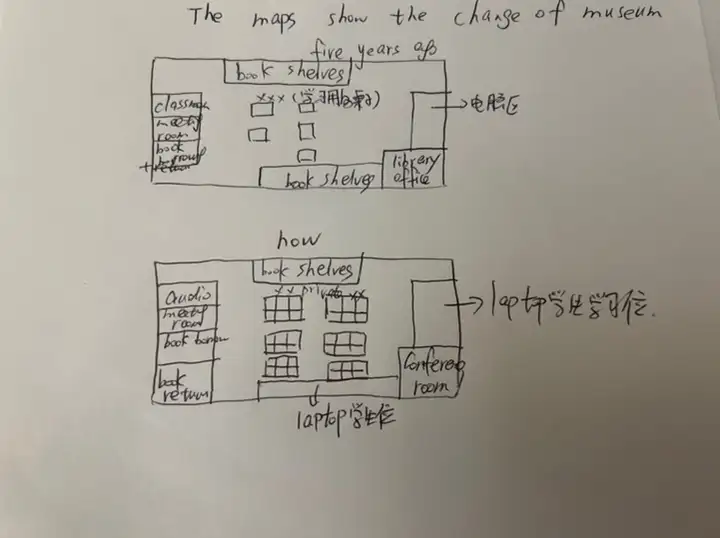 The maps show the change of museum
five years ago
book shelves
classroom
xxx (学习用的桌子)
→电脑区
meety
room
book
borrow
+ return
book shelves
library
office
now
book shelves
audio
xx private xx
→laptop学生学习位.
meety
room
book borrow
book
return
Conference
room
laptop学生位